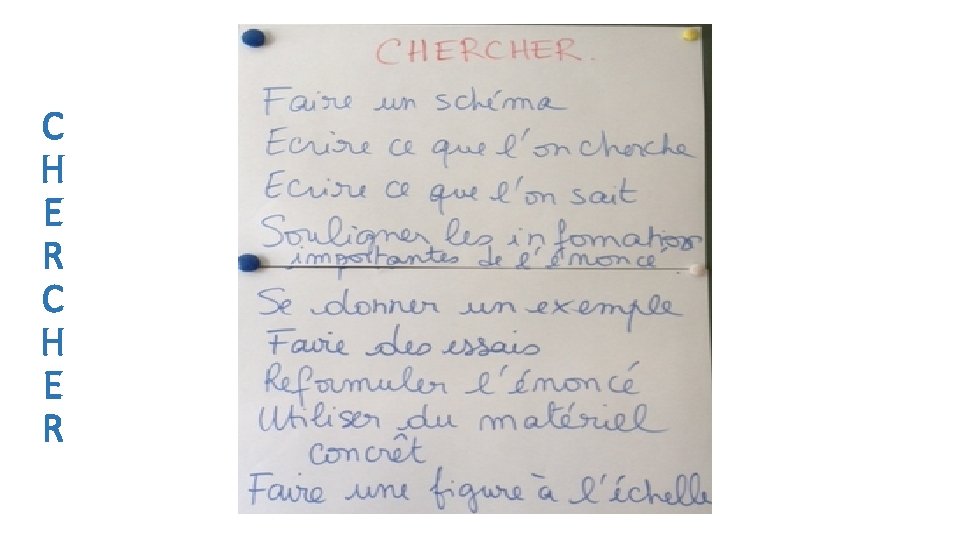 CHERCHER
CHERCHER.
Faire un schéma
Ecrire ce que l'on cherche
Ecrire ce que l'on sait
Souligner les informations
importantes de l'énoncé.
Se donner un exemple
Faire des essais
Reformuler l'énoncé
Utiliser du matériel
concrêt
Faire une figure à l'échelle